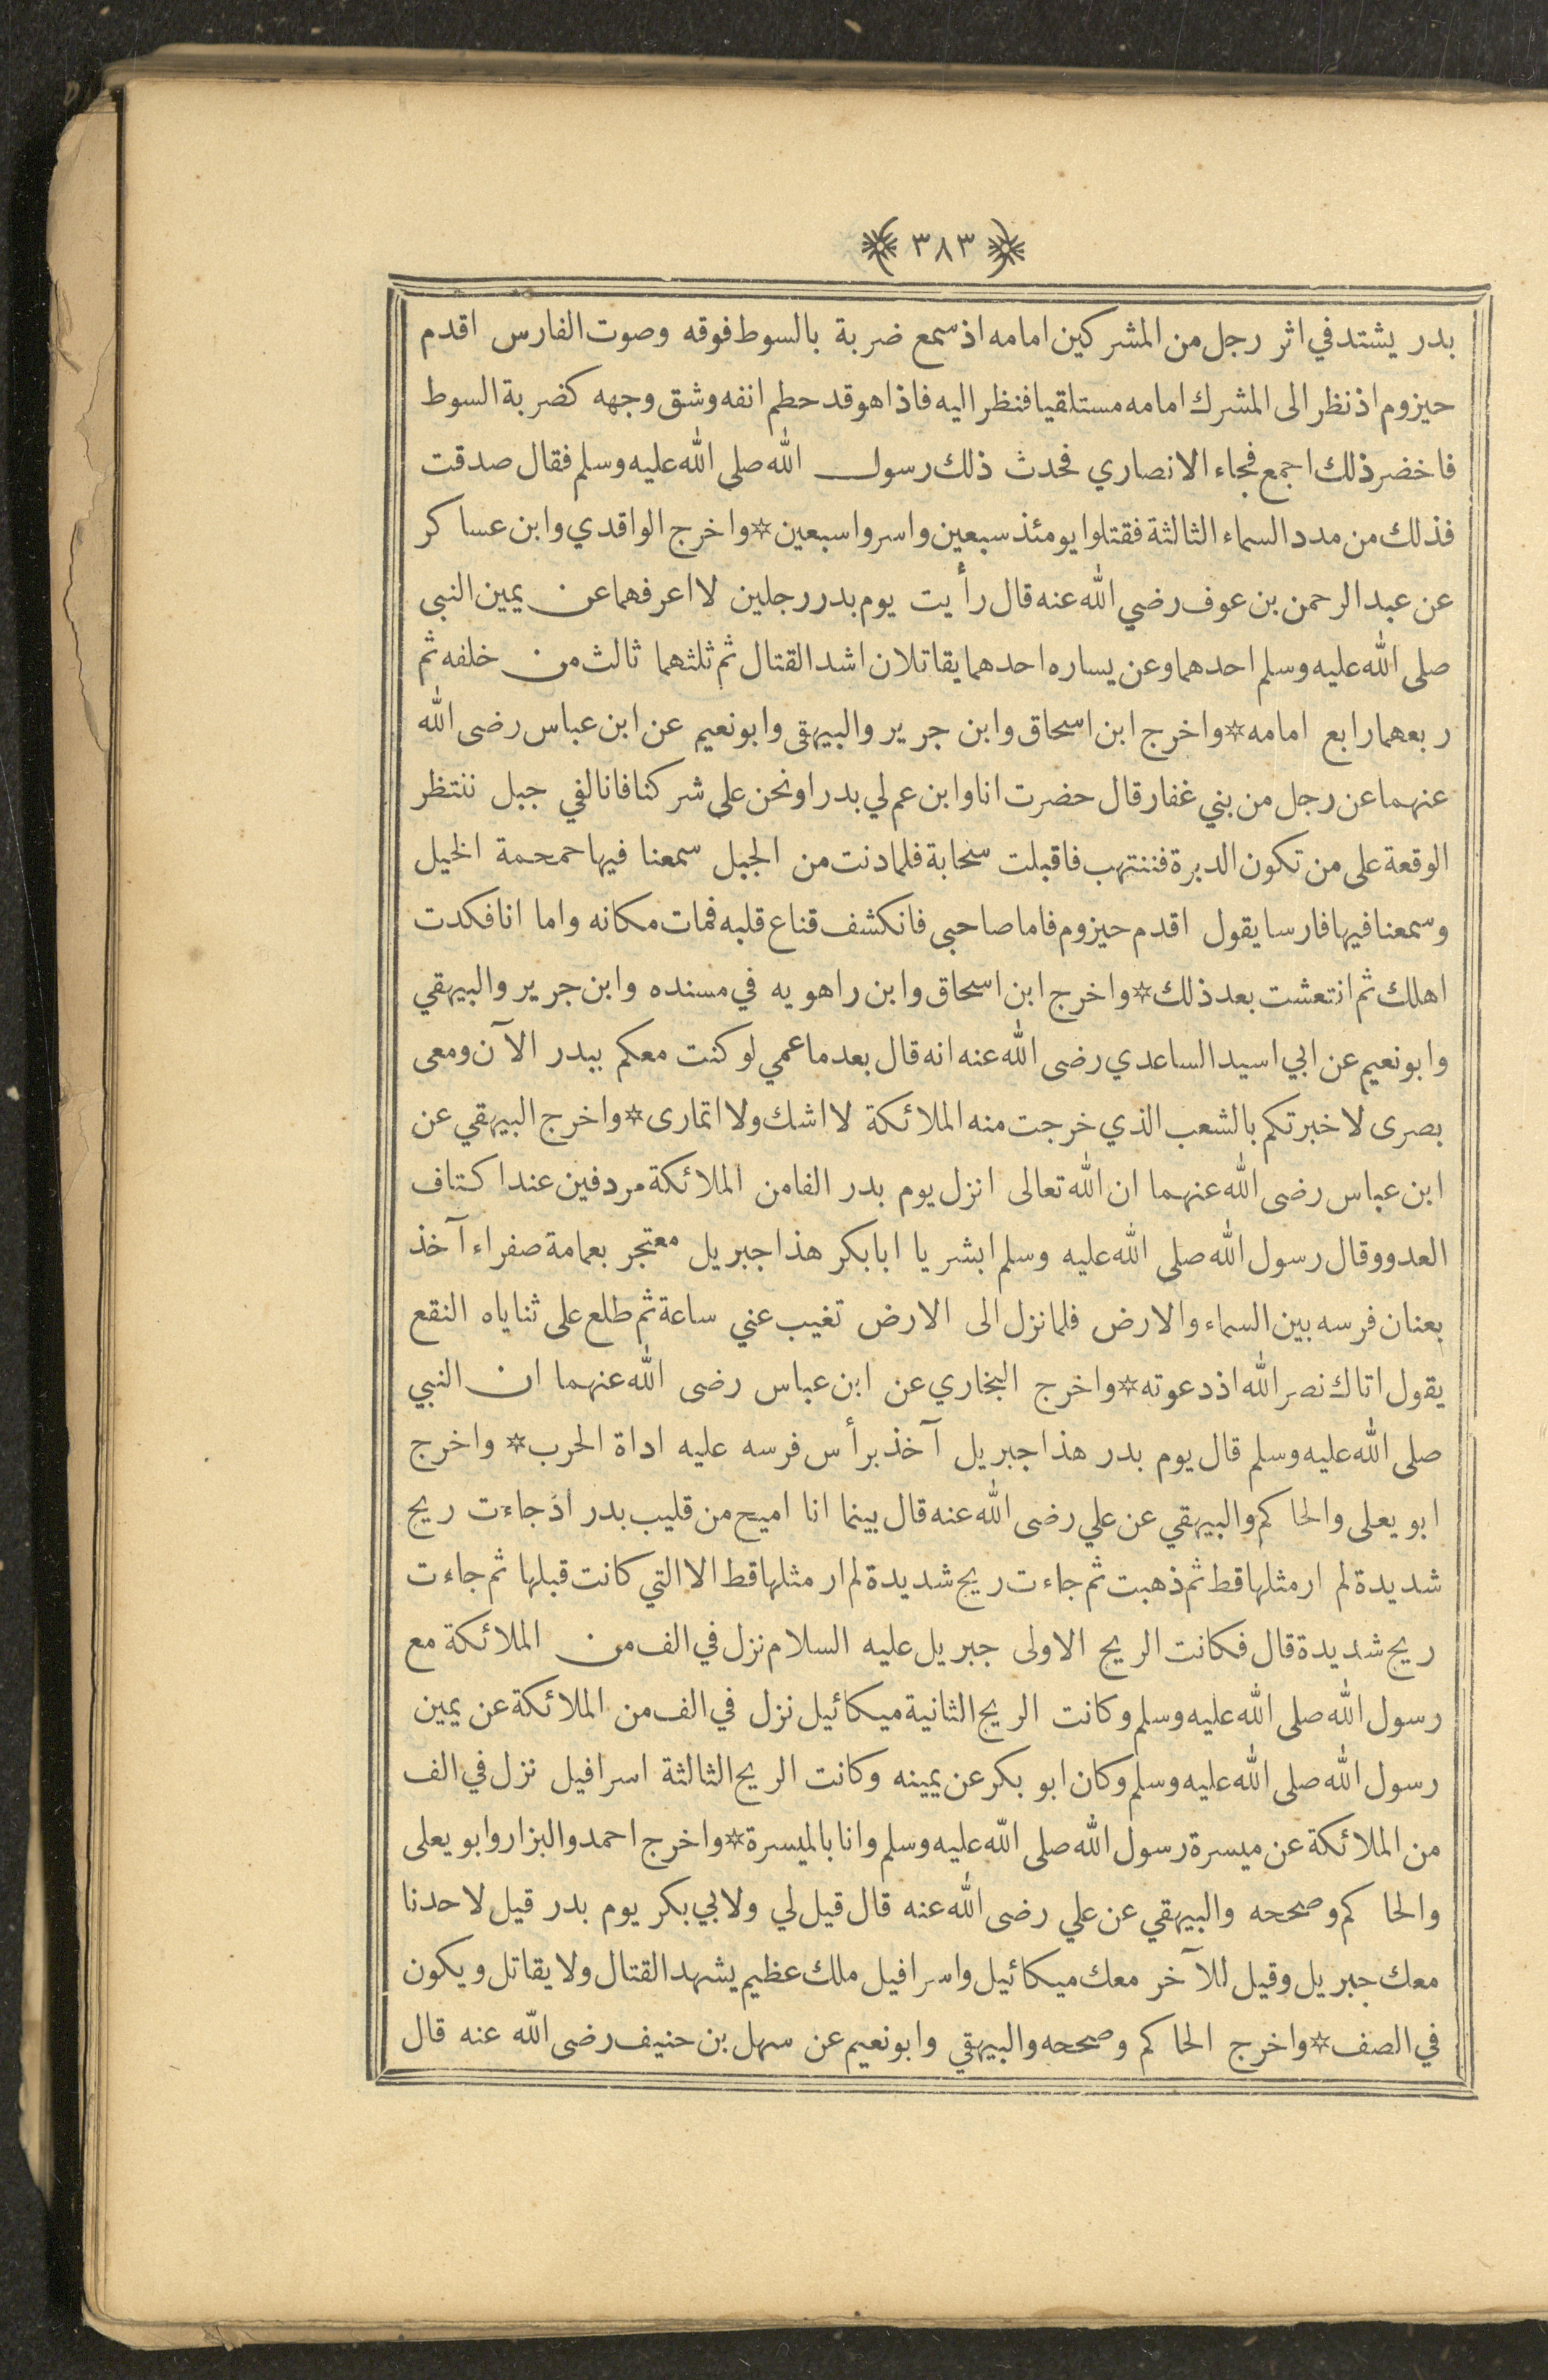 ﴿ ٣٨٣ ﴾
بدر يشتد في اثر رجل من المشركين امامه اذ سمع ضربة بالسوط فوقه وصوت الفارس اقدم
حيزوم اذ نظر الى المشرك امامه مستلقيا فنظر اليه فاذا هو قد حطم انفه وشق وجهه كضربة السوط
فاخضر ذلك اجمع فجاء الانصاري فحدث ذلك رسول الله صلى الله عليه وسلم فقال صدقت
فذلك من مدد السماء الثالثة فقتلوا يومئذ سبعين واسروا سبعين * واخرج الواقدي وابن عساكر
عن عبد الرحمن بن عوف رضي الله عنه قال رأيت يوم بدر رجلين لا اعرفهما عن يمين النبى
صلى الله عليه وسلم احدهما وعن يساره احدهما يقاتلان اشد القتال ثم ثلثهما ثالث من خلفه ثم
ربعهما رابع امامه * واخرج ابن اسحاق وابن جرير والبيهقى وابونعيم عن ابن عباس رضى الله
عنهما عن رجل من بني غفار قال حضرت انا وابن عم لي بدرا ونحن على شركنا فانا لفي جبل ننتظر
الوقعة على من تكون الدبرة فننتهب فاقبلت سحابة فلما دنت من الجبل سمعنا فيها حمحمة الخيل
وسمعنا فيها فارسا يقول اقدم حيزوم فاما صاحبى فانكشف قناع قلبه فمات مكانه واما انا فكدت
اهلك ثم انتعشت بعد ذلك * واخرج ابن اسحاق وابن راهويه في مسنده وابن جرير والبيهقي
وابونعيم عن ابي اسيد الساعدي رضى الله عنه انه قال بعد ما عمي لو كنت معكم ببدر الآن ومعى
بصرى لاخبرتكم بالشعب الذي خرجت منه الملائكة لا اشك ولا اتمارى * واخرج البيهقي عن
ابن عباس رضى الله عنهما ان الله تعالى انزل يوم بدر الفا من الملائكة مردفين عند اكتاف
العدو وقال رسول الله صلى الله عليه وسلم ابشر يا ابا بكر هذا جبريل معتجر بعمامة صفراء آخذ
بعنان فرسه بين السماء والارض فلما نزل الى الارض تغيب عني ساعة ثم طلع على ثناياه النقع
يقول اتاك نصر الله اذ دعوته * واخرج البخاري عن ابن عباس رضى الله عنهما ان النبي
صلى الله عليه وسلم قال يوم بدر هذا جبريل آخذ برأس فرسه عليه اداة الحرب * واخرج
ابو يعلى والحاكم والبيهقي عن علي رضى الله عنه قال بينما انا اميح من قليب بدر اذ جاءت ريح
شديدة لم ار مثلها قط ثم ذهبت ثم جاءت ريح شديدة لم ار مثلها قط الا التي كانت قبلها ثم جاءت
ريح شديدة قال فكانت الريح الاولى جبريل عليه السلام نزل في الف من الملائكة مع
رسول الله صلى الله عليه وسلم وكانت الريح الثانية ميكائيل نزل في الف من الملائكة عن يمين
رسول الله صلى الله عليه وسلم وكان ابو بكر عن يمينه وكانت الريح الثالثة اسرافيل نزل في الف
من الملائكة عن ميسرة رسول الله صلى الله عليه وسلم وانا بالميسرة * واخرج احمد والبزار وابو يعلى
والحاكم وصححه والبيهقي عن علي رضى الله عنه قال قيل لي ولابي بكر يوم بدر قيل لاحدنا
معك جبريل وقيل للآخر معك ميكائيل واسرافيل ملك عظيم يشهد القتال ولا يقاتل ويكون
في الصف * واخرج الحاكم وصححه والبيهقي وابونعيم عن سهل بن حنيف رضى الله عنه قال